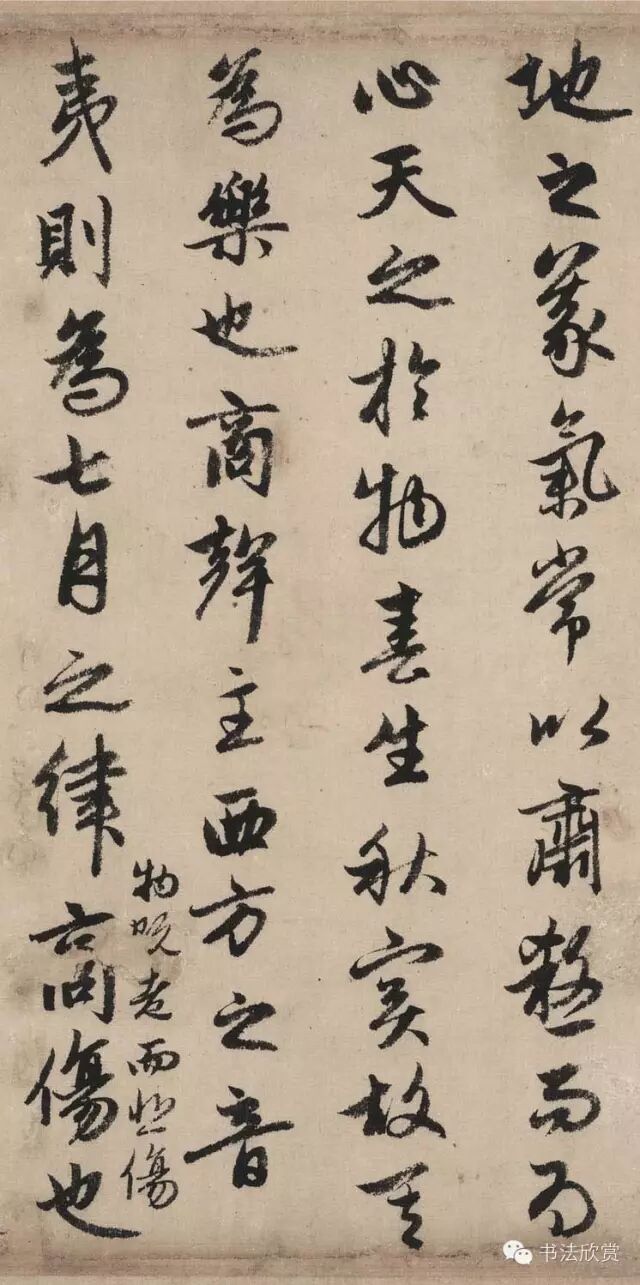 地之義氣常以肅殺而為
心天之於物春生秋實故其
為樂也商聲主西方之音
夷則為七月之律商傷也
物既老而悲傷
书法欣赏